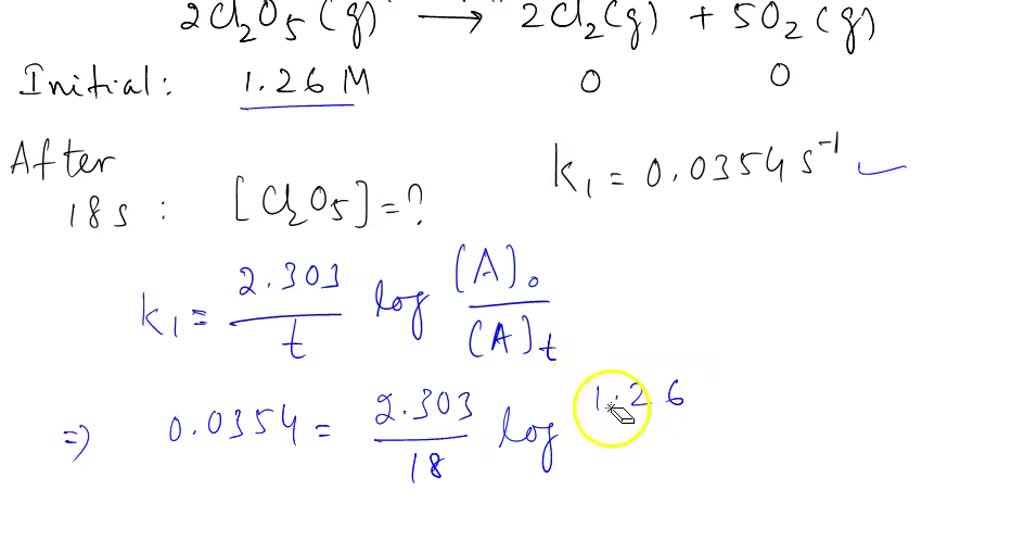 2Cl₂O₅(g) → 2Cl₂(g) + 5O₂(g)
Initial: 1.26 M 0 0
After
18s : [Cl₂O₅] = ? k₁ = 0.0354 s⁻¹
k₁ = 2.303/t log (A)₀/(A)t
⇒ 0.0354 = 2.303/18 log 1.26